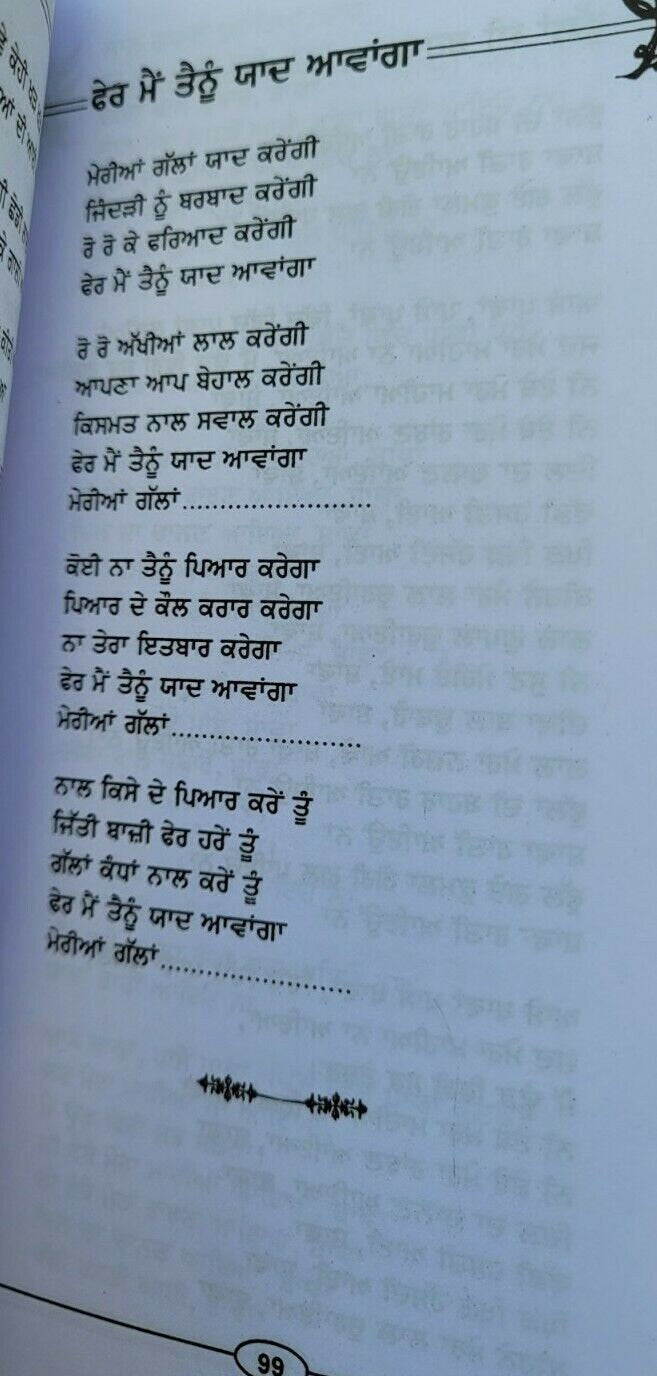 ਫੇਰ ਮੈਂ ਤੈਨੂੰ ਯਾਦ ਆਵਾਂਗਾ
ਮੇਰੀਆਂ ਗੱਲਾਂ ਯਾਦ ਕਰੇਂਗੀ
ਜਿੰਦੜੀ ਨੂੰ ਬਰਬਾਦ ਕਰੇਂਗੀ
ਰੋ ਰੋ ਕੇ ਫਰਿਆਦ ਕਰੇਂਗੀ
ਫੇਰ ਮੈਂ ਤੈਨੂੰ ਯਾਦ ਆਵਾਂਗਾ
ਰੋ ਰੋ ਅੱਖੀਆਂ ਲਾਲ ਕਰੇਂਗੀ
ਆਪਣਾ ਆਪ ਬੇਹਾਲ ਕਰੇਂਗੀ
ਕਿਸਮਤ ਨਾਲ ਸਵਾਲ ਕਰੇਂਗੀ
ਫੇਰ ਮੈਂ ਤੈਨੂੰ ਯਾਦ ਆਵਾਂਗਾ
ਮੇਰੀਆਂ ਗੱਲਾਂ.........................
ਕੋਈ ਨਾ ਤੈਨੂੰ ਪਿਆਰ ਕਰੇਗਾ
ਪਿਆਰ ਦੇ ਕੌਲ ਕਰਾਰ ਕਰੇਗਾ
ਨਾ ਤੇਰਾ ਇਤਬਾਰ ਕਰੇਗਾ
ਫੇਰ ਮੈਂ ਤੈਨੂੰ ਯਾਦ ਆਵਾਂਗਾ
ਮੇਰੀਆਂ ਗੱਲਾਂ.........................
ਨਾਲ ਕਿਸੇ ਦੇ ਪਿਆਰ ਕਰੇਂ ਤੂੰ
ਜਿੱਤੀ ਬਾਜ਼ੀ ਫੇਰ ਹਰੇਂ ਤੂੰ
ਗੱਲਾਂ ਕੰਧਾਂ ਨਾਲ ਕਰੇਂ ਤੂੰ
ਫੇਰ ਮੈਂ ਤੈਨੂੰ ਯਾਦ ਆਵਾਂਗਾ
ਮੇਰੀਆਂ ਗੱਲਾਂ.........................
99